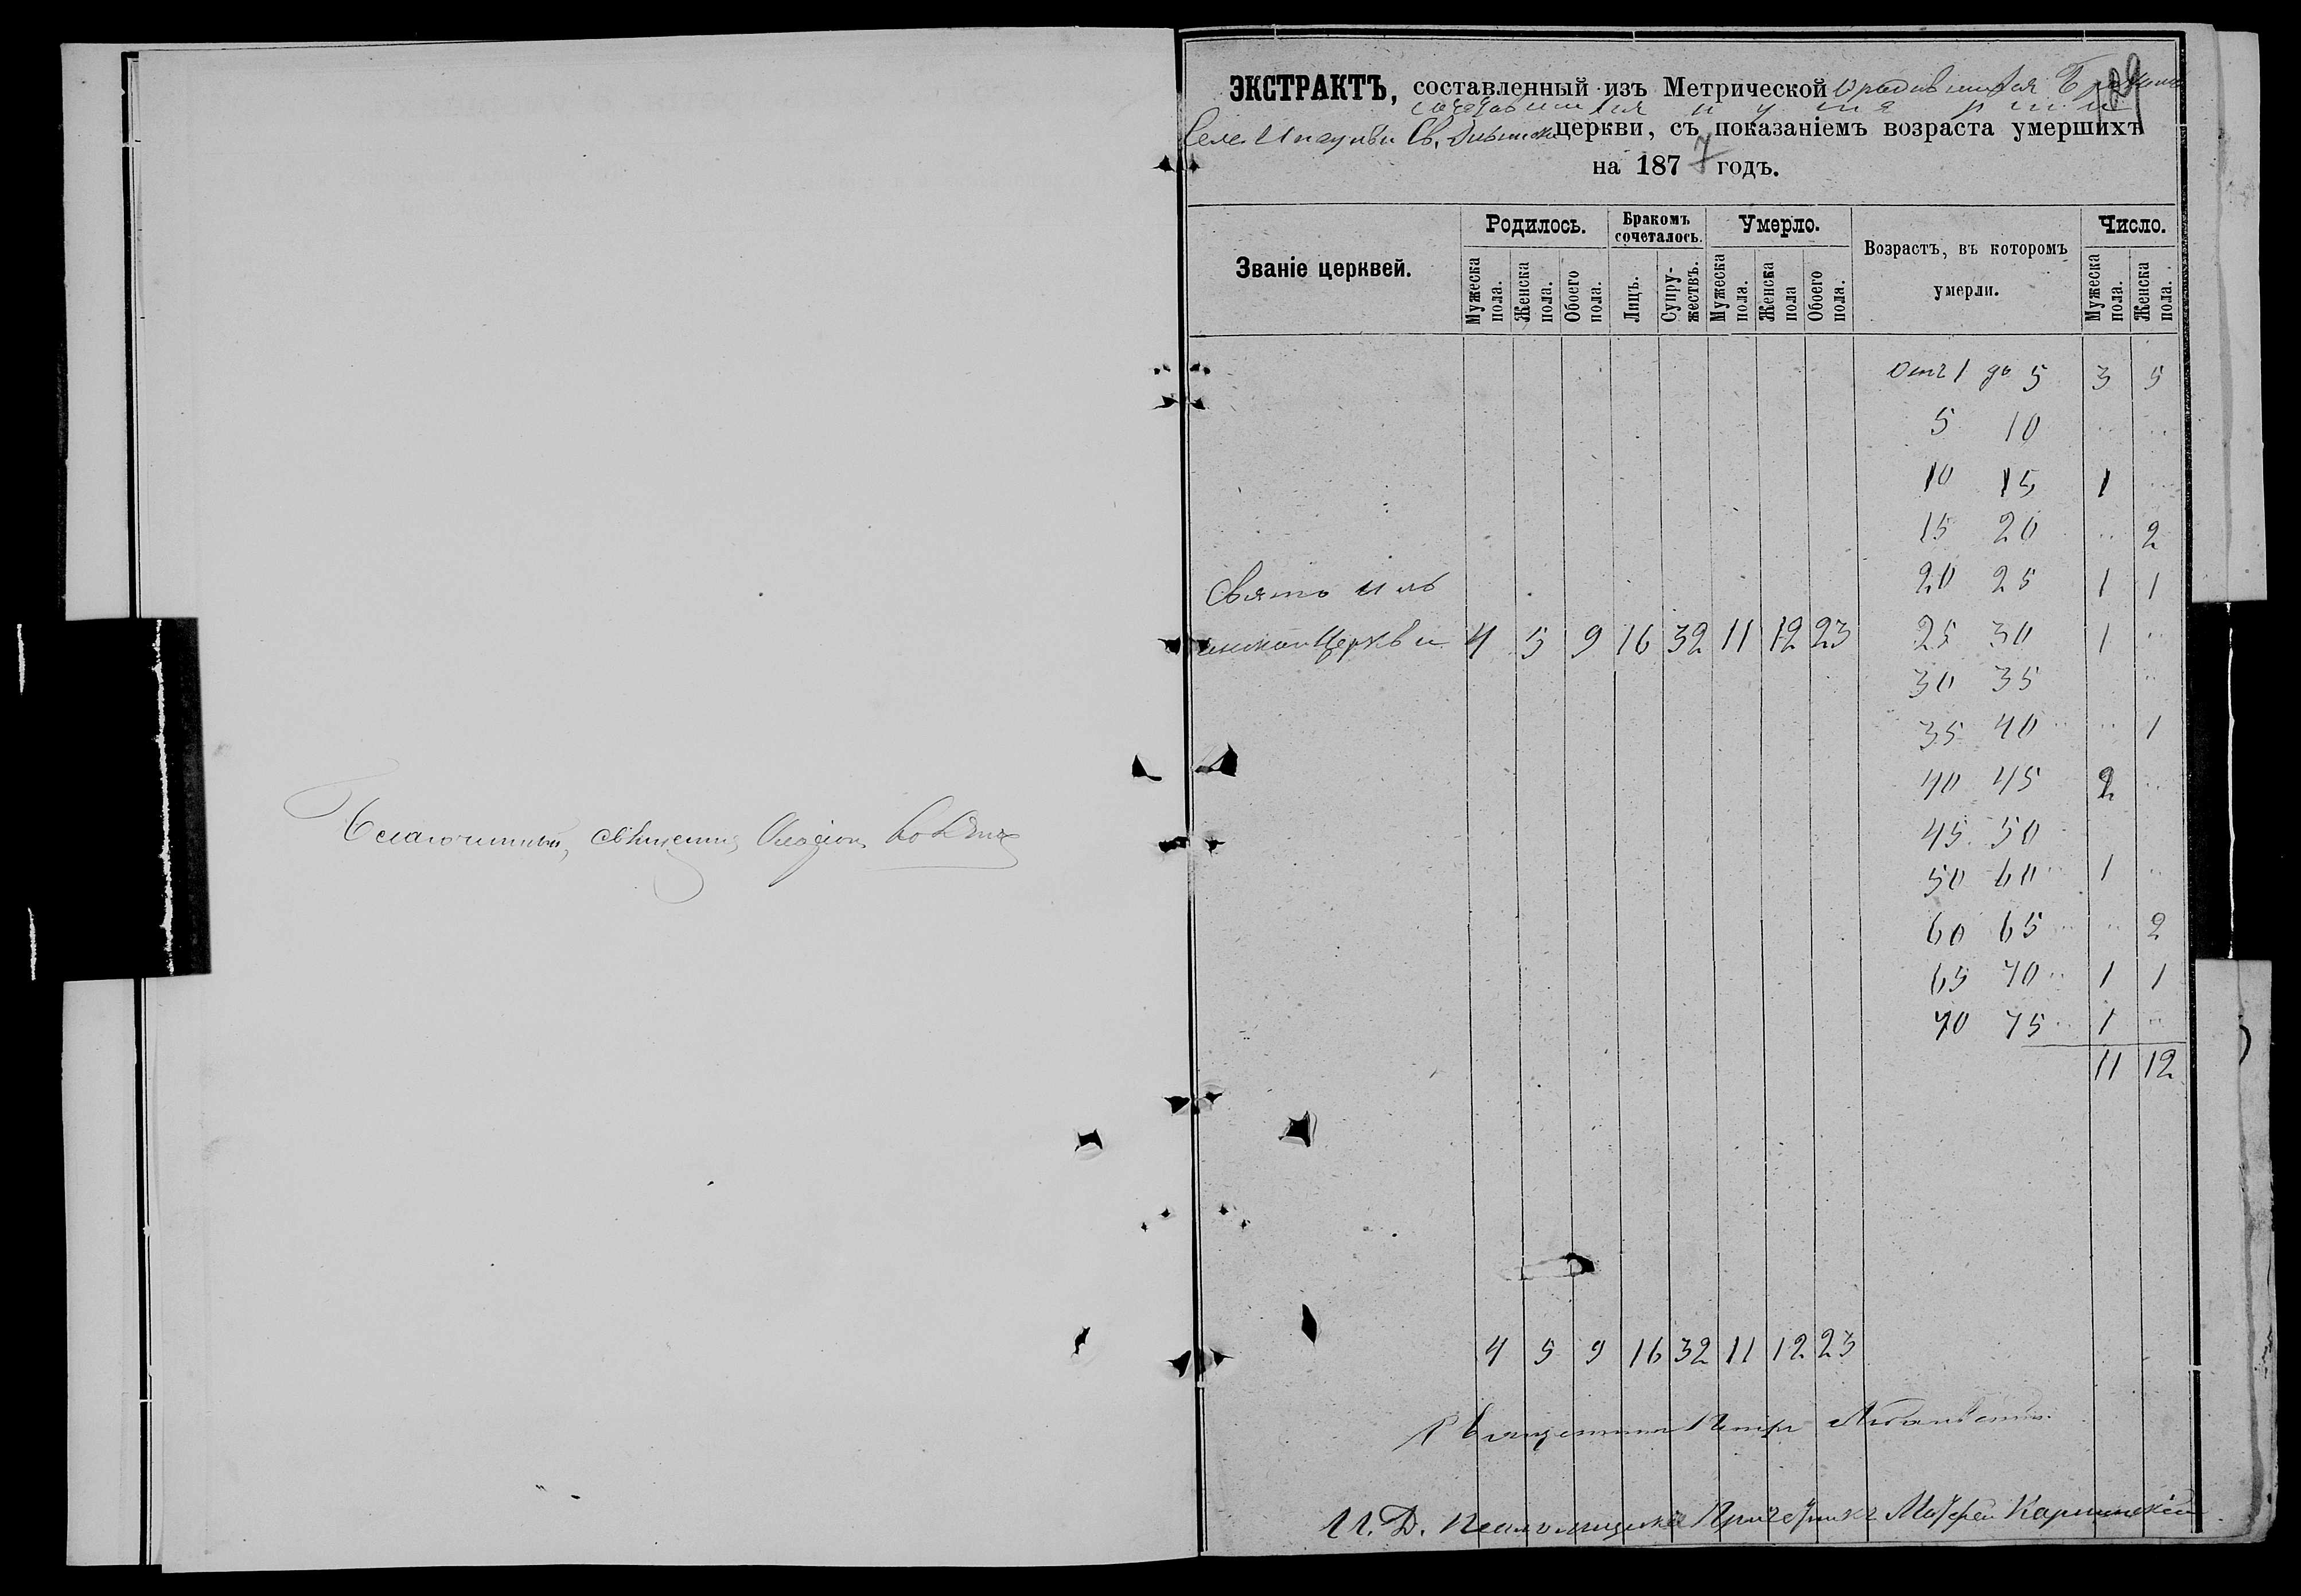 Благочинный, священникъ
ЭКСТРАКТЪ, составленный изъ Метрической о родившихся Бракомъ
сочетавшихся и умерши
Села Св. церкви, съ показаніемъ возраста умершихъ
на 1877 годъ.
129
Званіе церквей. Родилось. Бракомъ сочеталось. Умерло. Возрастъ, въ которомъ умерли. Число.
Мужеска пола. Женска пола. Обоего пола. Лицъ. Супружествъ. Мужеска пола. Женска пола Обоего пола. Мужеска пола. Женска пола.
Отъ 1 до 5 3 5
5 10 .. ..
10 15 1 ..
15 20 .. 2
Свято Иль
20 25 1 1
инской Церкви 4 5 9 16 32 11 12 23 25 30 1 ..
30 35 ..
35 40 .. .. 1
40 45 2 ..
45 50
50 60 .. 1 ..
60 65 .. .. 2
65 70 .. 1 1
70 75 .. 1 ..
11 12
4 5 9 16 32 11 12 23
Священникъ Петръ
И. Д. Псаломщика Причетникъ Матфей